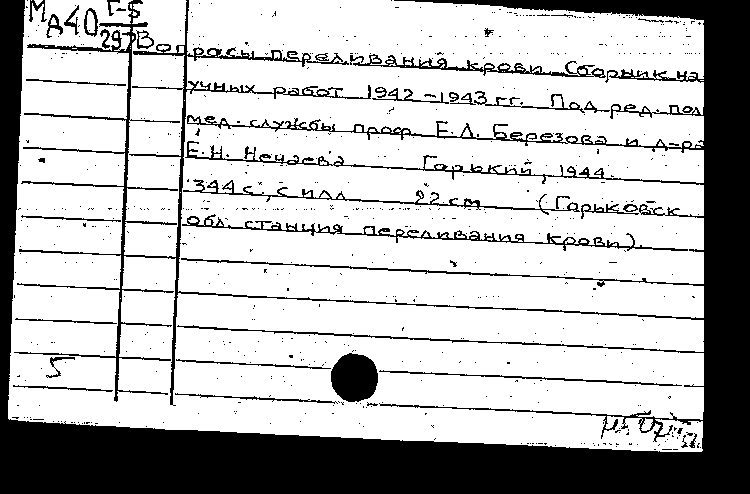 МА40 Г-5
297
Вопросы переливания крови Сборник на-
учных работ 1942-1943 гг. Под ред. полк
мед. службы проф. Е.Л. Березова и д-ра
Е.Н. Нечаева Горький, 1944.
344 с., с илл 22 см (Горьковск
обл. станция переливания крови)
5